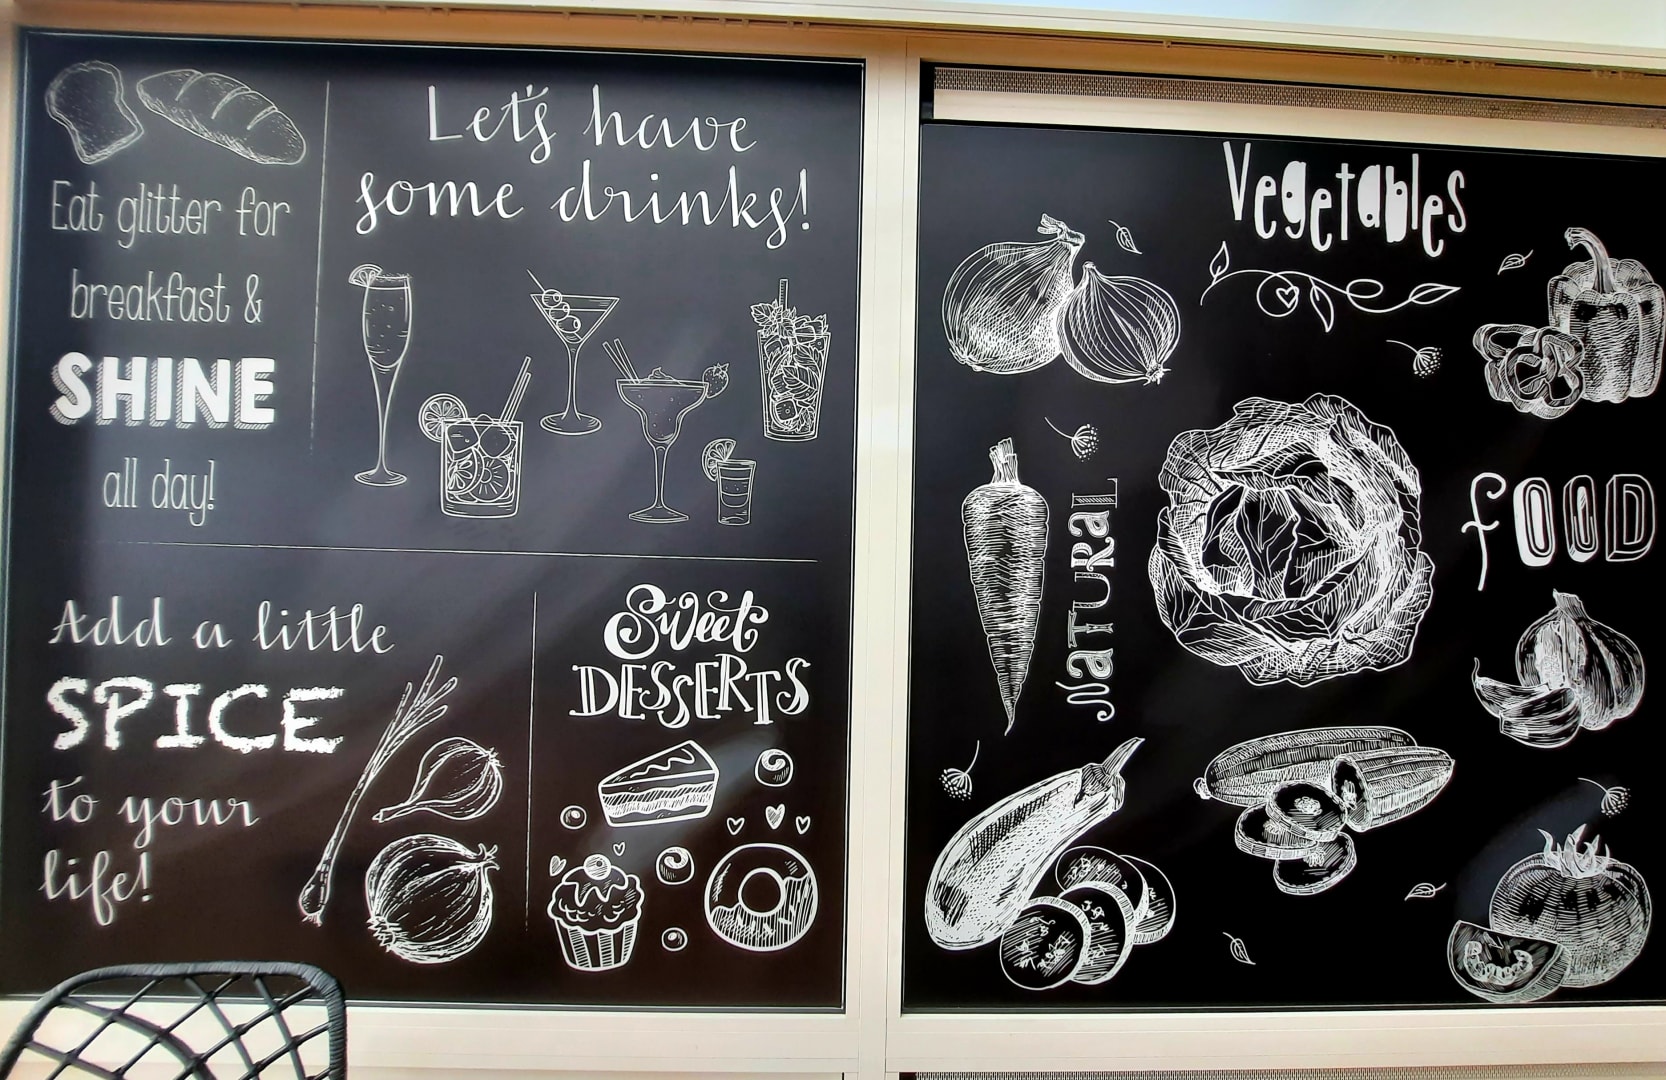 Eat glitter for
breakfast &
SHINE
all day!
Let's have
some drinks!
Add a little
SPICE
to your
life!
Sweet
DESSERTS
Vegetables
NATURAL
fOOD